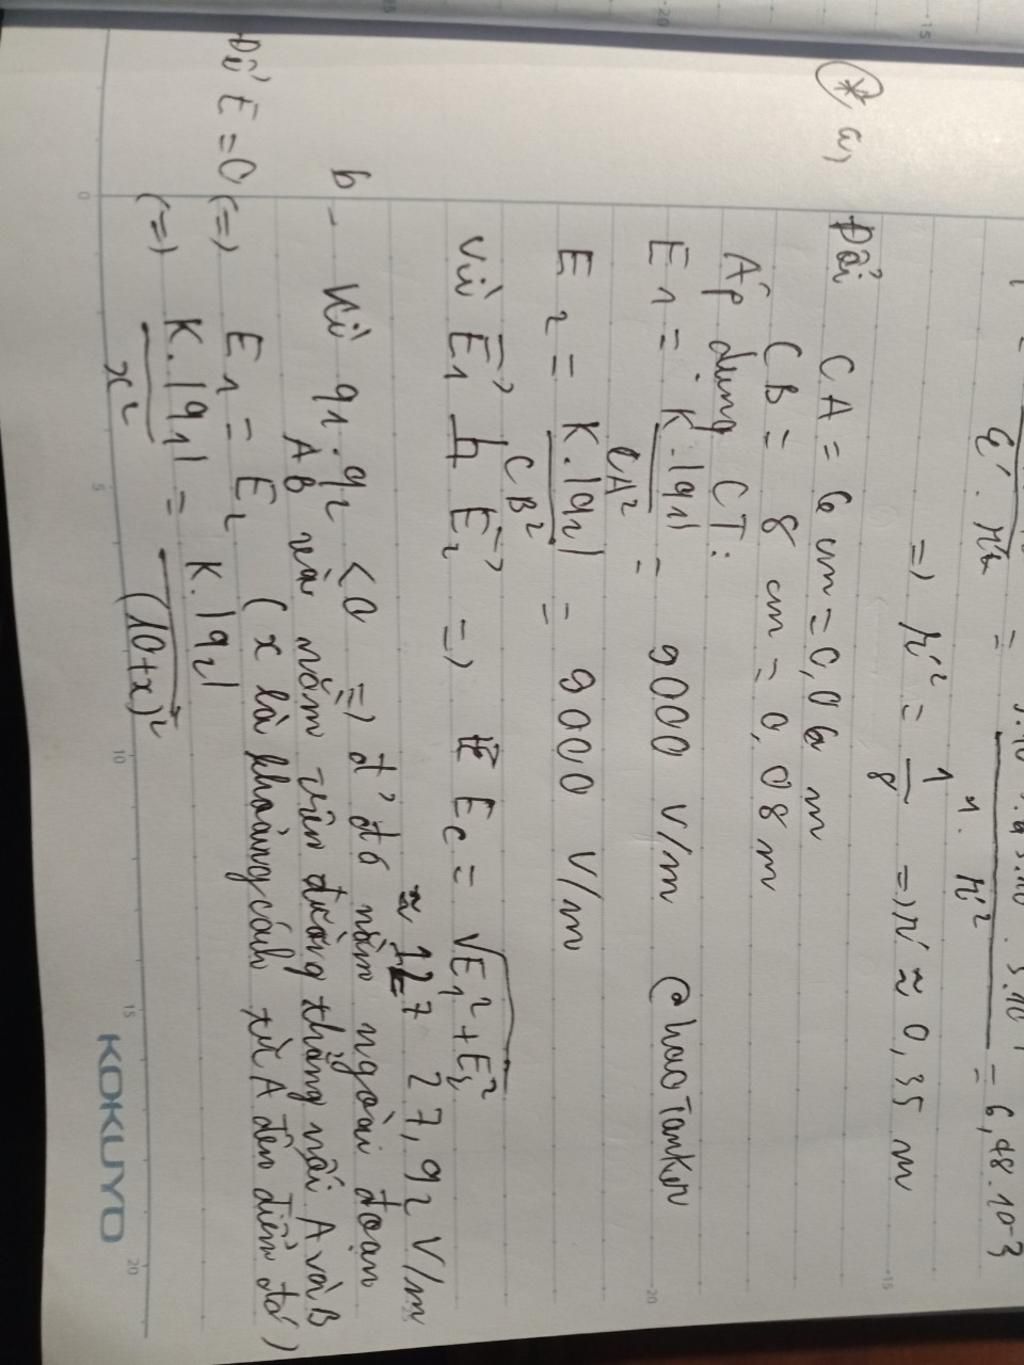 =) r'² = 1/8 =) r' ≈ 0,35 m
= 6,48.10-3
* a, Đổi CA = 6 cm = 0,06 m
CB = 8 cm = 0,08 m
Áp dụng CT:
E1 = K.|q1| / CA² = 9000 V/m @haoTankm
E2 = K.|q2| / CB² = 9000 V/m
Vì E1 ⊥ E2 =) Ec = √E1² + E2²
≈ 127 27,92 V/m
b - Vì q1.q2 <0 =) đ' đó nằm ngoài đoạn
AB và nằm trên đường thẳng nối A và B
Để E = 0 (=) E1 = E2 (x là khoảng cách từ A đến điểm đó)
(=) K.|q1| / x² = K.|q2| / (10+x)²
0 5 10 15 20
KOKUYO